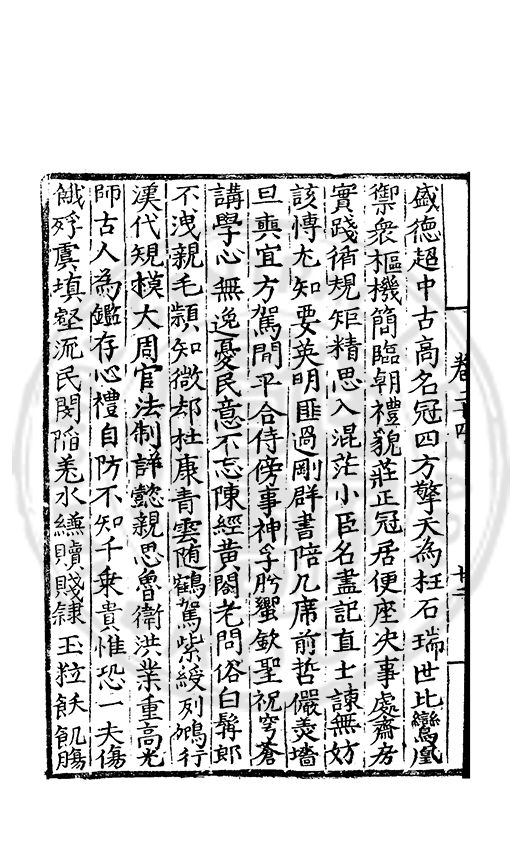 盛德超中古高名冠四方擎天為柱石瑞世比鸞凰
禦衆樞機簡臨朝禮貌莊正冠居便座决事處齋房
實踐循規矩精思入混茫小臣名盡記直士諫無妨
該博尤知要英明匪過剛群書陪几席前哲儼羮墻
旦奭宜方駕間平合侍傍事神孚肸蠁欽聖祝穹蒼
講學心無逸憂民意不忘陳經黃閤老問俗白髯郎
不洩親毛穎知微却杜康青雲随鶴駕紫綬列鵷行
漢代規模大周官法制詳懿親思魯衛洪業重高光
師古人為鑑存心禮自防不知千乗貴惟恐一夫傷
餓殍虞填壑流民閔陷羗水縑贖賤隷玉粒飫飢腸
卷二十四
十二